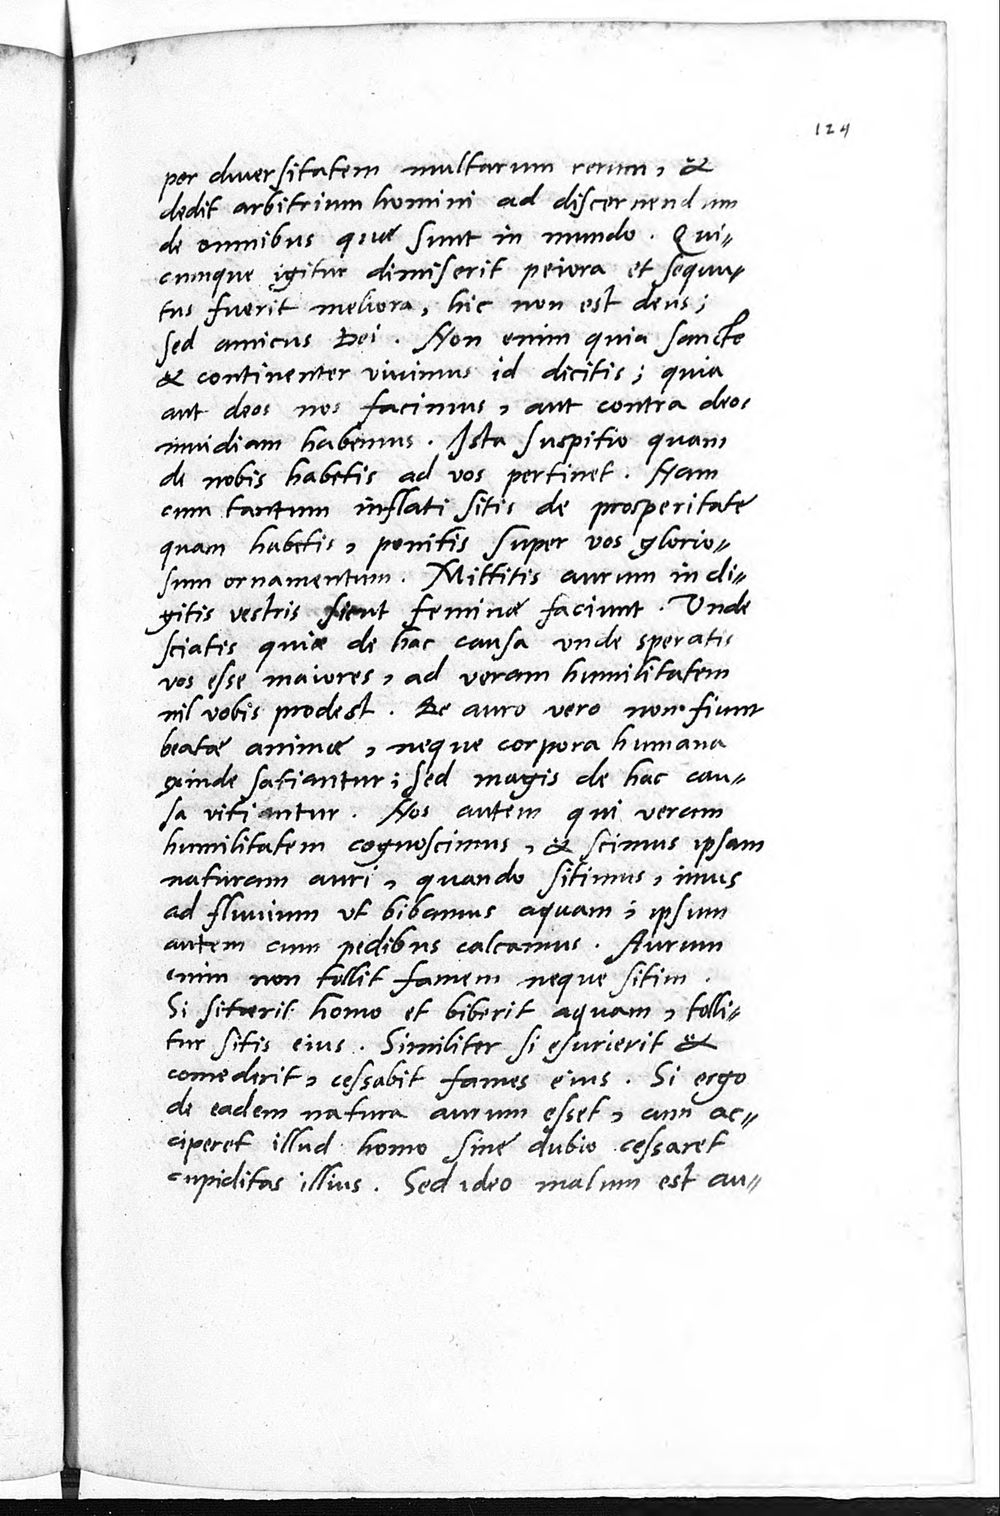 124
per diversitatem multarum rerum, &
dedit arbitrium homini ad discernendum
de omnibus quæ sunt in mundo. Qui=
cumque igitur dimiserit peiora et sequu=
tus fuerit meliora, hic non est deus;
sed amicus Dei. Non enim quia sancte
& continenter vivimus id dicitis; quia
aut deos nos facimus, aut contra deos
invidiam habemus. Ista suspitio quam
de nobis habetis ad vos pertinet. Nam
cum tantum inflati sitis de prosperitate
quam habetis, ponitis super vos glorio=
sum ornamentum. Mittitis aurum in di=
gitis vestris sicut feminæ faciunt. Unde
sciatis quia de hac causa unde speratis
vos esse maiores, ad veram humilitatem
nil vobis prodest. De auro vero non fiunt
beatæ animæ, neque corpora humana
exinde satiantur; sed magis de hac cau=
sa vitiantur. Nos autem qui veram
humilitatem cognoscimus, & scimus ipsam
naturam auri, quando sitimus, imus
ad fluvium ut bibamus aquam; ipsum
autem cum pedibus calcamus. Aurum
enim non tollit famem neque sitim.
Si sitierit homo et biberit aquam, tolli=
tur sitis eius. Similiter si esurierit &
comederit, cessabit fames eius. Si ergo
de eadem natura aurum esset, cum ac=
ciperet illud homo sine dubio cessaret
cupiditas illius. Sed ideo malum est au=